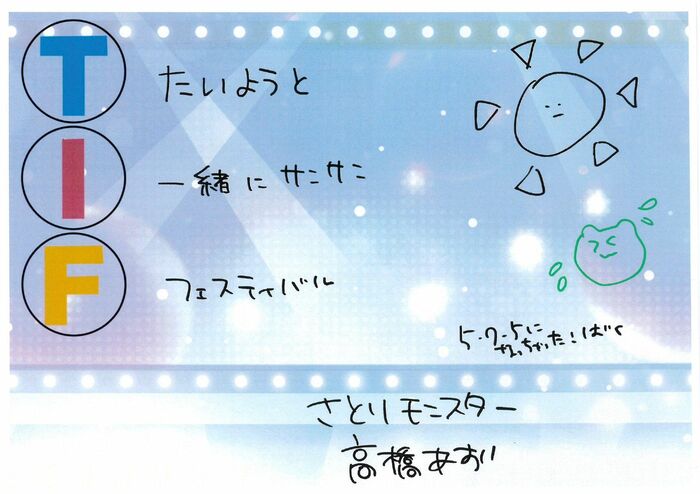 T たいようと
I 一緒に サンサン
F フェスティバル
5・7・5に
なっちゃった!ばく
さとりモンスター
高橋あおい